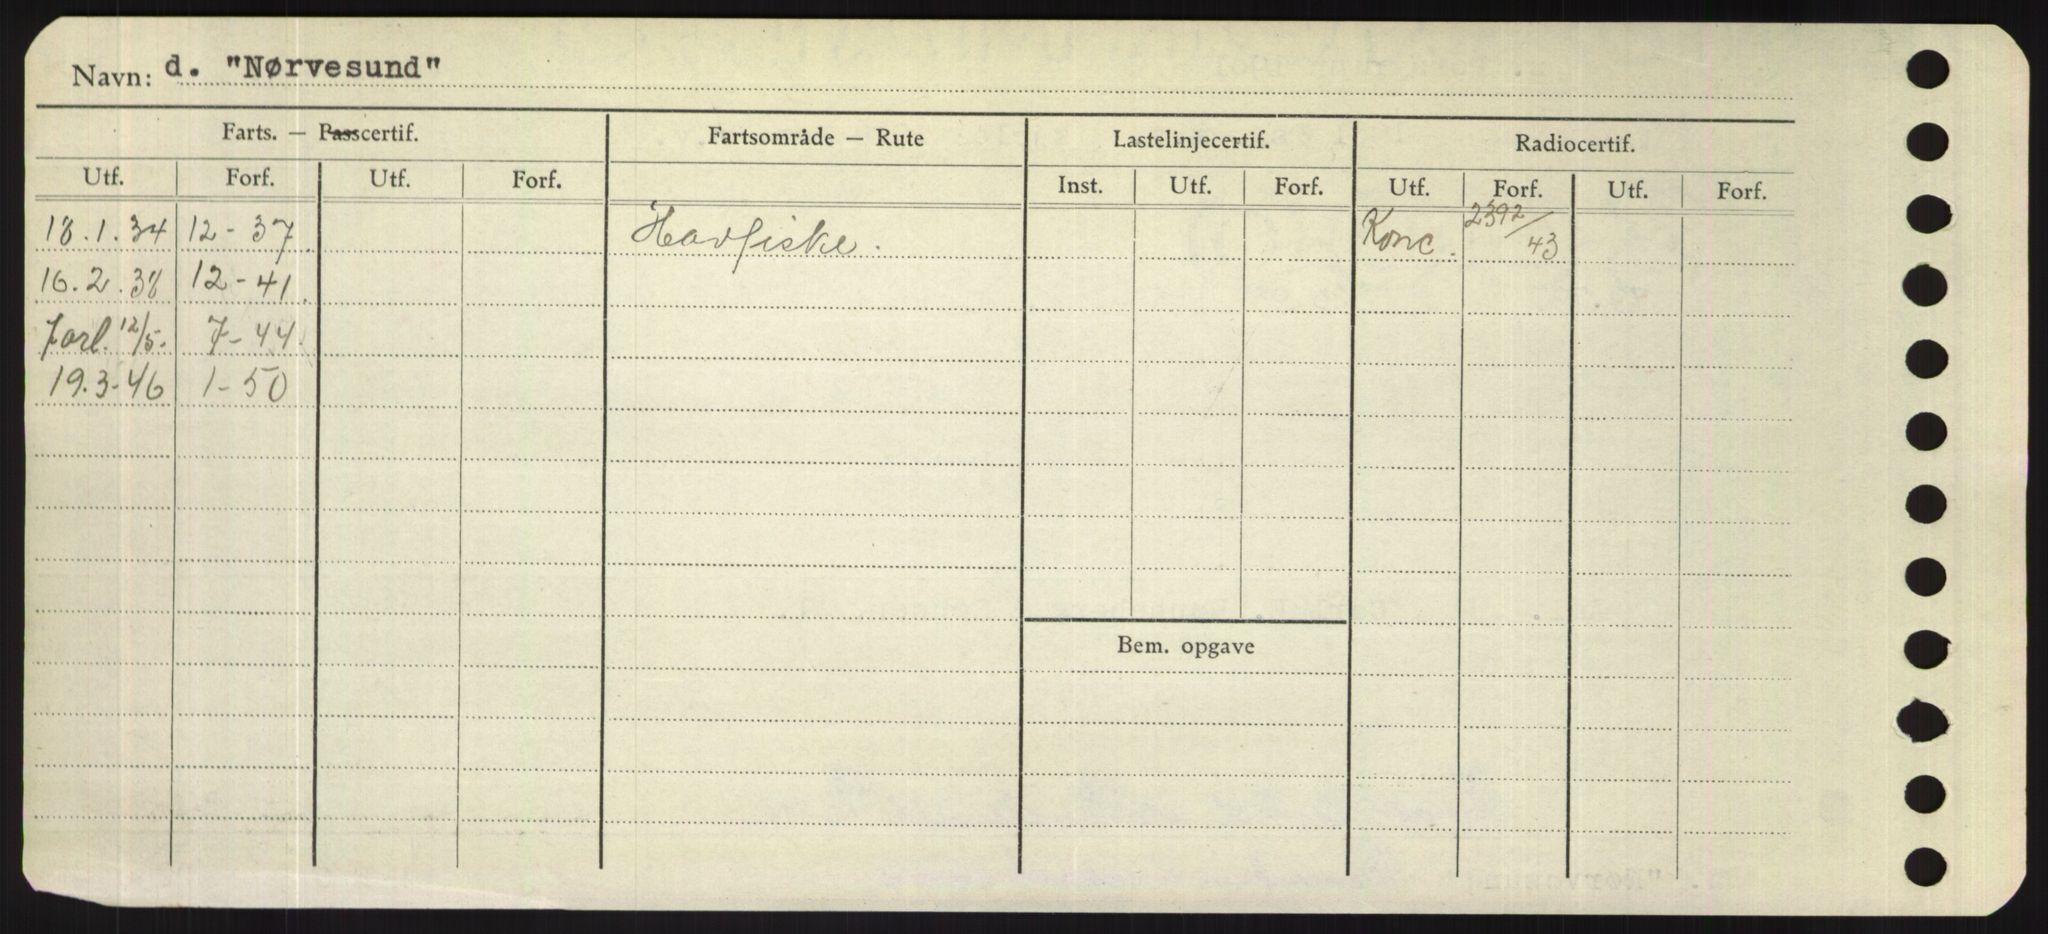 Navn: d. "Nørvesund"
Farts. — Passcertif. Fartsområde — Rute Lastelinjecertif. Radiocertif.
Utf. Forf. Utf. Forf. Inst. Utf. Forf. Utf. Forf. Utf. Forf.
18.1.34 12-37 Havfiske. Konc. 2392/43
16.2.38 12-41
Forl. 12/5. 7-44
19.3-46 1-50
Bem. opgave